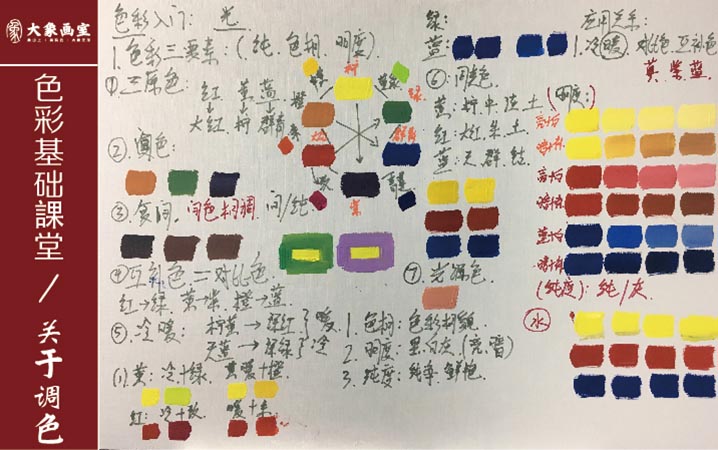 大象画室
色彩基础課堂 / 关于调色
色彩入门: 光
1. 色彩三要素: (纯. 色相. 明度)
① 三原色: 红 黄 蓝
大红 柠 群青
② 间色:
③ 复间. 间色相调. 间/纯.
④ 互补色 = 对比色
红→绿. 黄→紫. 橙→蓝.
⑤ 冷暖: 柠黄→深红 } 暖
天蓝→深绿 } 冷
(1) 黄: 冷+绿. 黄暖+橙
红: 冷+玫 暖+朱
柠
橙
黄绿
绿
大红
群青
紫
绿:
蓝:
⑥ 同类色
黄: 柠 中 浅 土
红: 大红 朱 土
蓝: 天 群 钴
⑦ 光源色
1. 色相: 色彩相貌
2. 明度: 黑白灰 (亮. 暗)
3. 纯度: 纯率. 鲜艳
应用关系:
1. 冷暖. 对比色. 互补色
黄. 紫. 蓝
(明度:)
(纯度): 纯/灰
水